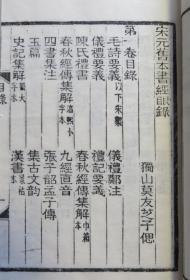 宋元舊本書經眼錄
獨山莫友芝子偲
第一卷目錄
毛詩要義以下宋槧 儀禮鄭注
儀禮要義 禮記要義
陳氏禮書 春秋經傳集解巾箱本
春秋經傳集解淳熙小字本 九經直音
四書集注 張子韶孟子傳
玉篇 集古文韻
史記集解蜀大字本 漢書景祐本
目錄